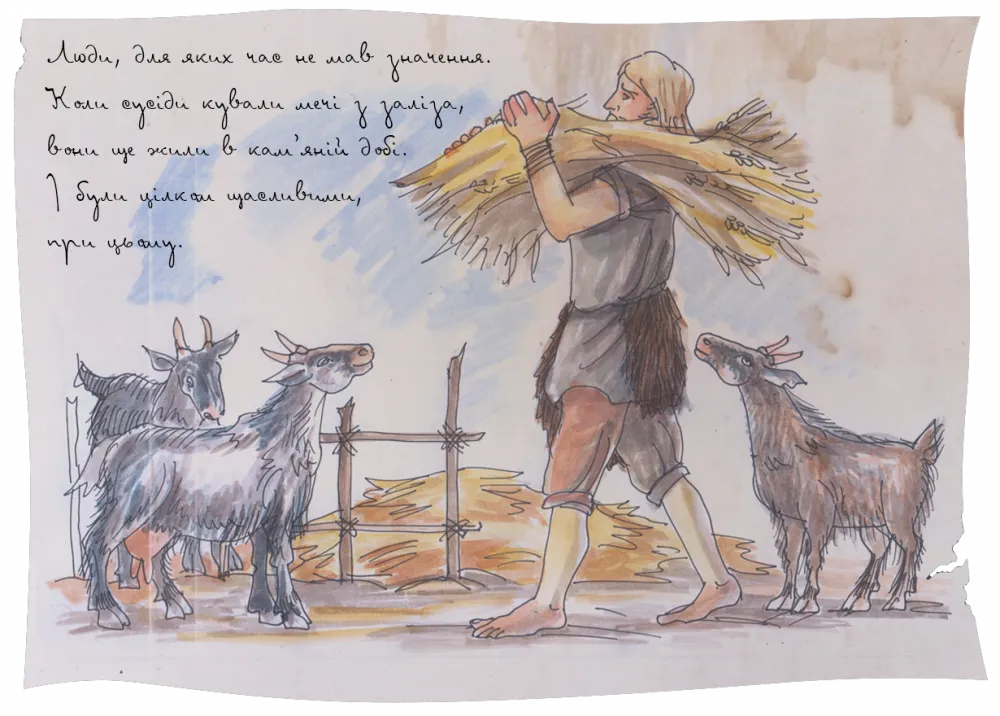 Люди, для яких час не мав значення.
Коли сусіди кували мечі з заліза,
вони ще жили в кам'яній добі.
І були цілком щасливими,
при цьому.